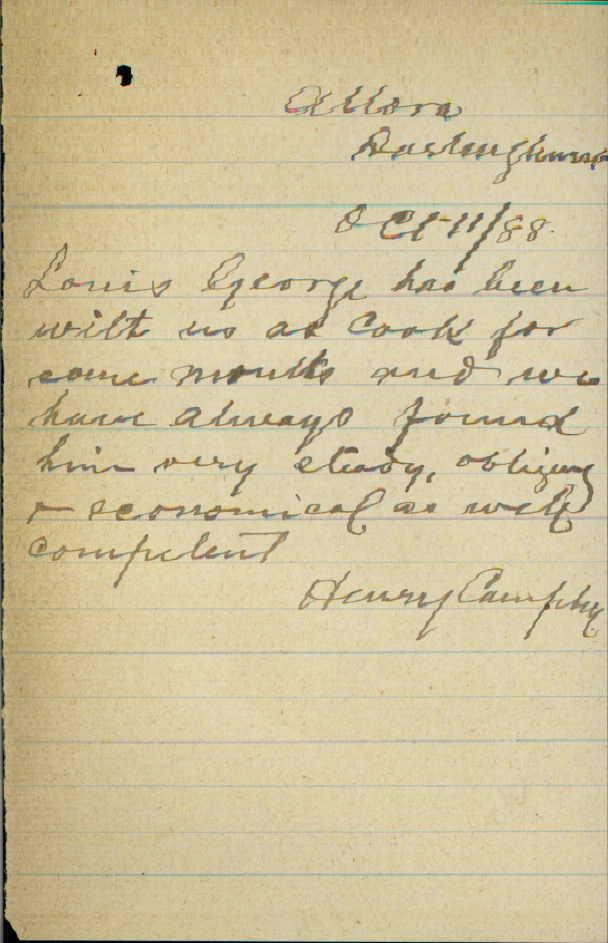 Allora
Darlinghurst
Oct 11/88.
Louis George has been
with us as Cook for
some months and we
have always found
him very steady, obliging
& economical as well
competent
Henry